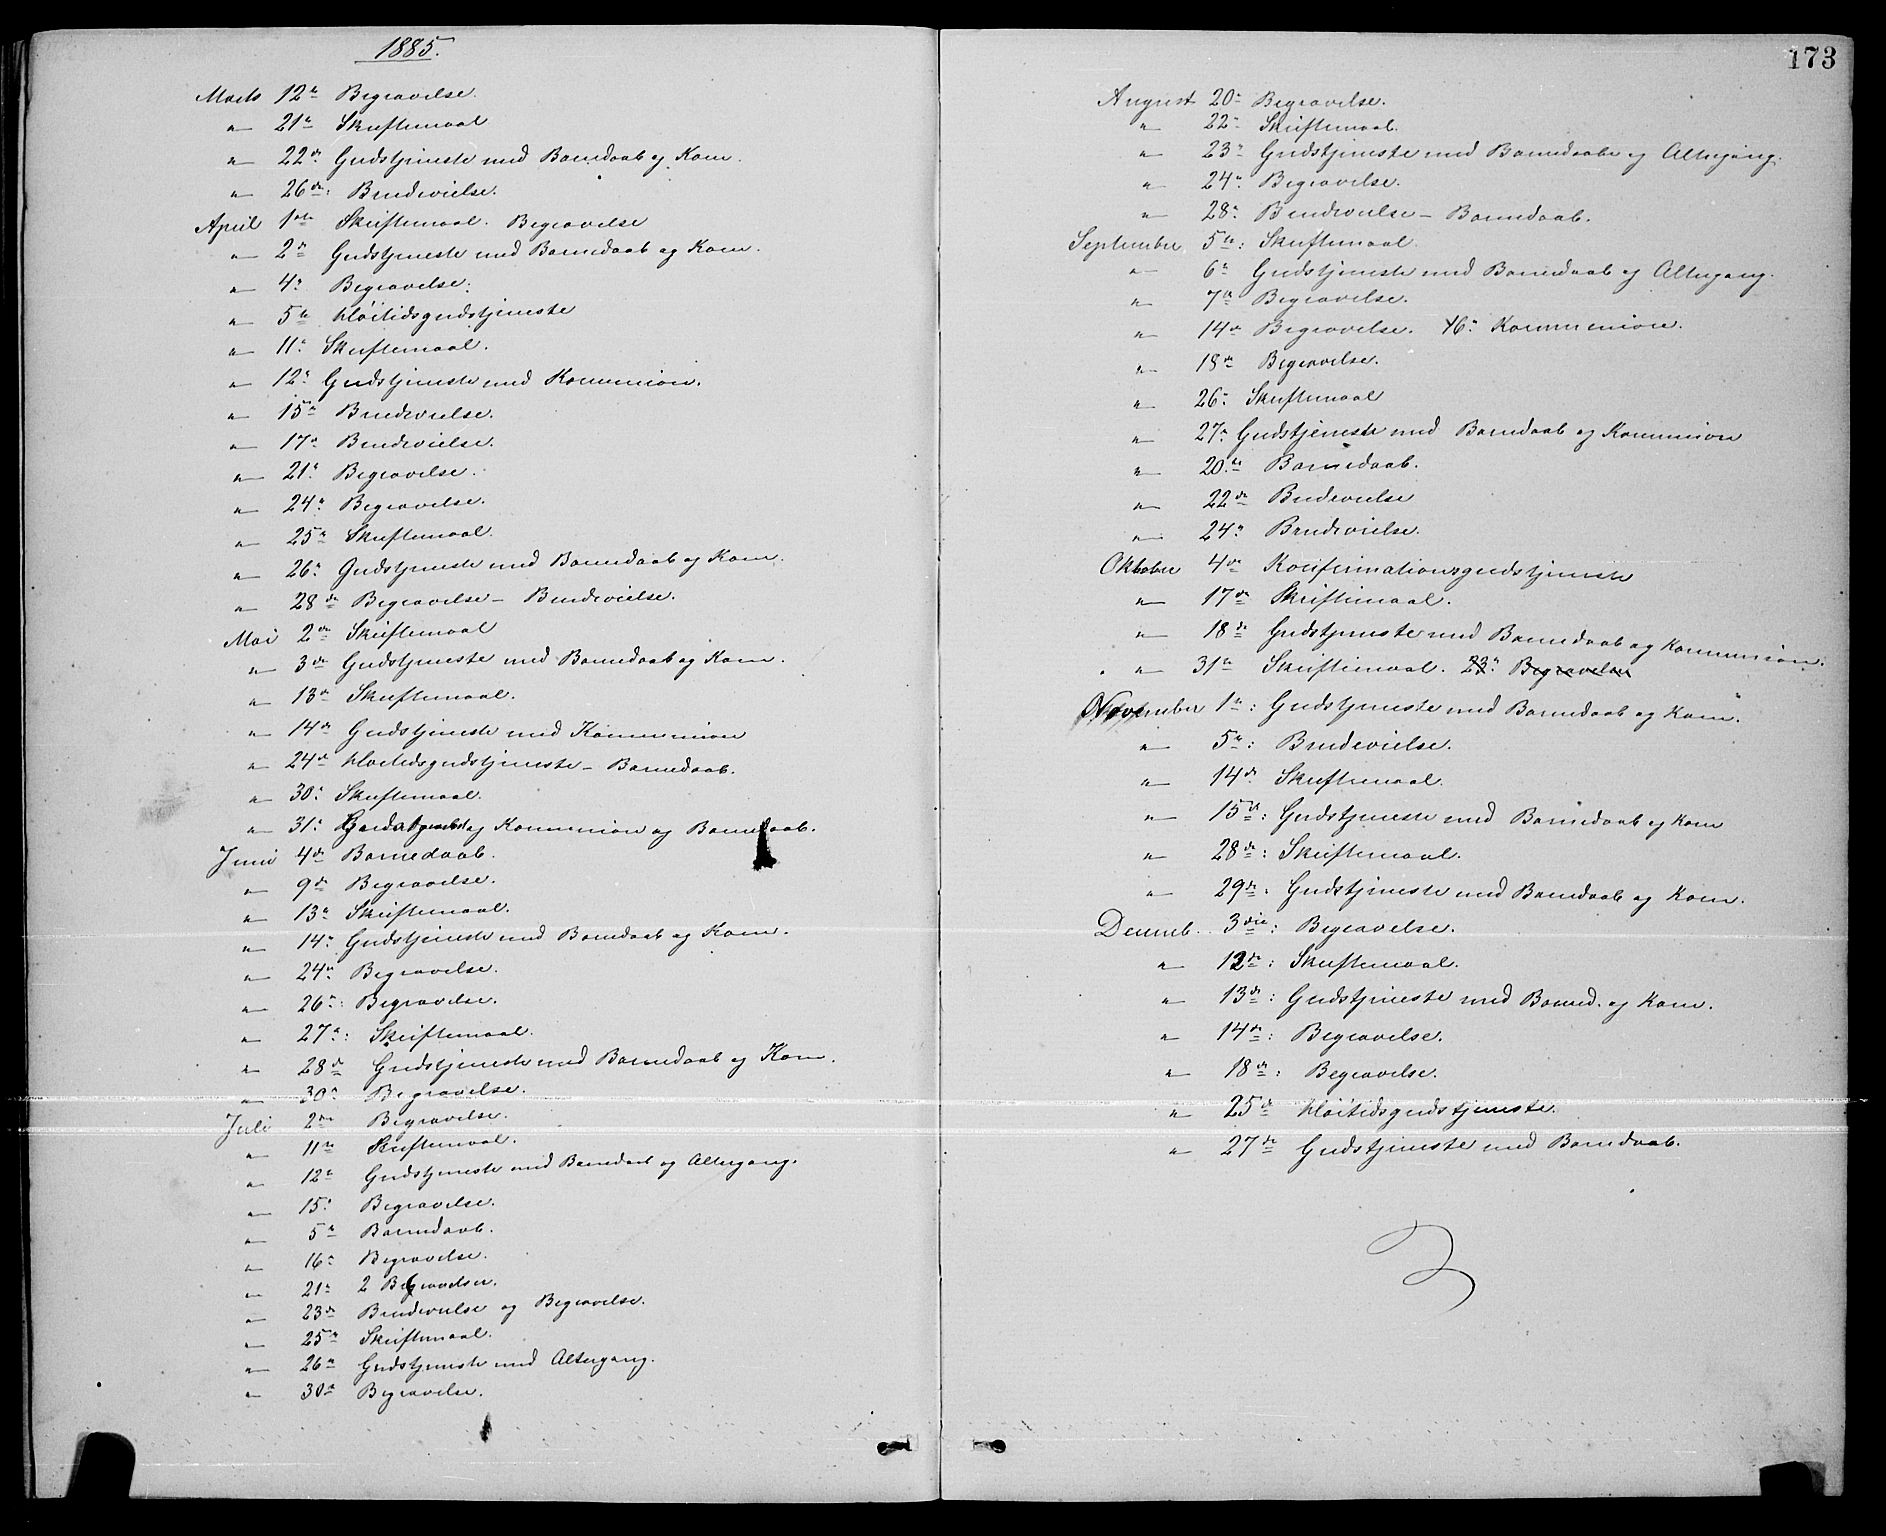 1885.
Marts 12te Begravelse.
" 21de Skriftemaal
" 22de Gudstjeneste med Barnedaab og Kom.
" 26de: Brudevielse.
April 1ste Skriftemaal. Begravelse
" 2de Gudstjeneste med Barnedaab og Kom.
" 4de Begravelse.
" 5te Høitidsgudstjeneste
" 11te Skriftemaal.
" 12te Gudstjeneste med Kommunion.
" 15de Brudevielse.
" 17de Brudevielse.
" 21de Begravelse.
" 24de Begravelse.
" 25de Skriftemaal.
" 26de Gudstjeneste med Barnedaab og Kom.
" 28de Begravelse – Brudevielse.
Mai 2den Skriftemaal
" 3die Gudstjeneste med Barnedaab og Kom.
" 13de Skriftemaal.
" 14de Gudstjeneste med Kommunion
" 24de Høitidsgudstjeneste – Barnedaab.
" 30te Skriftemaal.
" 31te Gudstjeneste og Kommunion og Barnedaab.
Juni 4de Barnedaab.
" 9de Begravelse.
" 13de Skriftemaal.
" 14de Gudstjeneste med Barnedaab og Kom.
" 24de Begravelse.
" 26de: Begravelse.
" 27de: Skriftemaal.
" 28de Gudstjeneste med Barnedaab og Kom.
" 30te Begravelse.
Juli 2den Begravelse.
" 11te Skriftemaal.
" 12te Gudstjeneste med Barnedaab og Altergang.
" 15de Begravelse.
" 5te Barnedaab.
" 16de Begravelse.
" 21de 2 Begravelser.
" 23de Brudevielse og Begravelse.
" 25de Skriftemaal.
" 26de Gudstjeneste med Altergang.
" 30te Begravelse.
173
August 20de Begravelse.
" 22de Skriftemaal.
" 23de Gudstjeneste med Barnedaab og Altergang.
" 24de Begravelse.
" 28de Brudevielse – Barnedaab.
September 5te: Skriftemaal.
" 6te Gudstjeneste med Barnedaab og Altergang.
" 7de Begravelse.
" 14de Begravelse. 16de Kommunion.
" 18de Begravelse.
" 26de Skriftemaal
" 27de Gudstjeneste med Barnedaab og Kommunion
" 20de Barnedaab.
" 22de Brudevielse
" 24de Brudevielse.
Oktober 4de Konfirmationsgudstjeneste
" 17de Skriftemaal.
" 18de Gudstjeneste med Barnedaab og Kommunion.
" 31te Skriftemaal. 23de Begravelse
November 1ste: Gudstjeneste med Barnedaab og Kom.
" 5te: Brudevielse.
" 14de Skriftemaal.
" 15de: Gudstjeneste med Barnedaab og Kom
" 28de: Skriftemaal.
" 29de: Gudstjeneste med Barnedaab og Kom.
Decemb. 3die: Begravelse.
" 12te: Skriftemaal.
" 13de: Gudstjeneste med Barned. og Kom.
" 14de: Begravelse.
" 18de: Begravelse.
" 25de Høitidsgudstjeneste.
" 27de Gudstjeneste med Barnedaab.